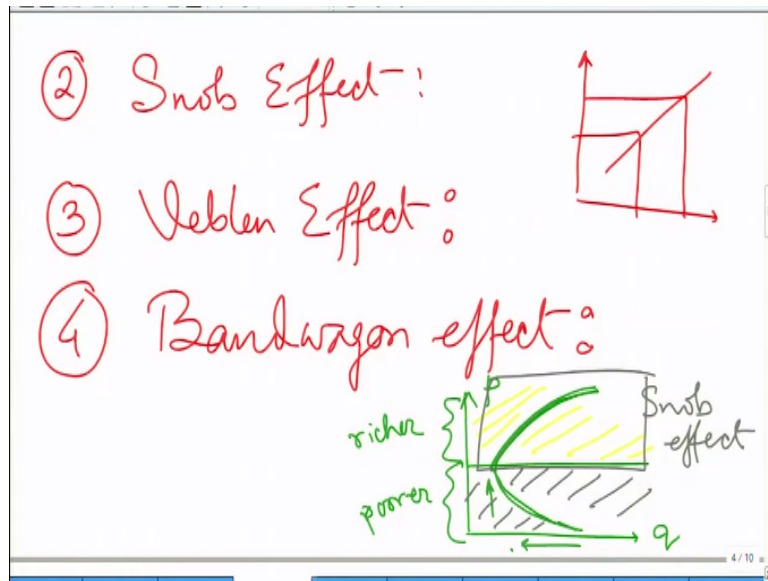 ② Snob Effect:
③ Veblen Effect:
④ Bandwagon effect:
P
richer
Snob effect
poorer
q
4 / 10